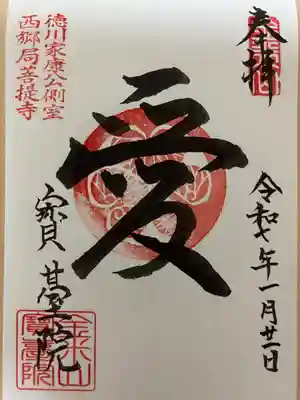 奉拝
令和七年一月廿一日
愛
徳川家康公側室
西郷局菩提寺
寳臺院
金米山
寶臺院